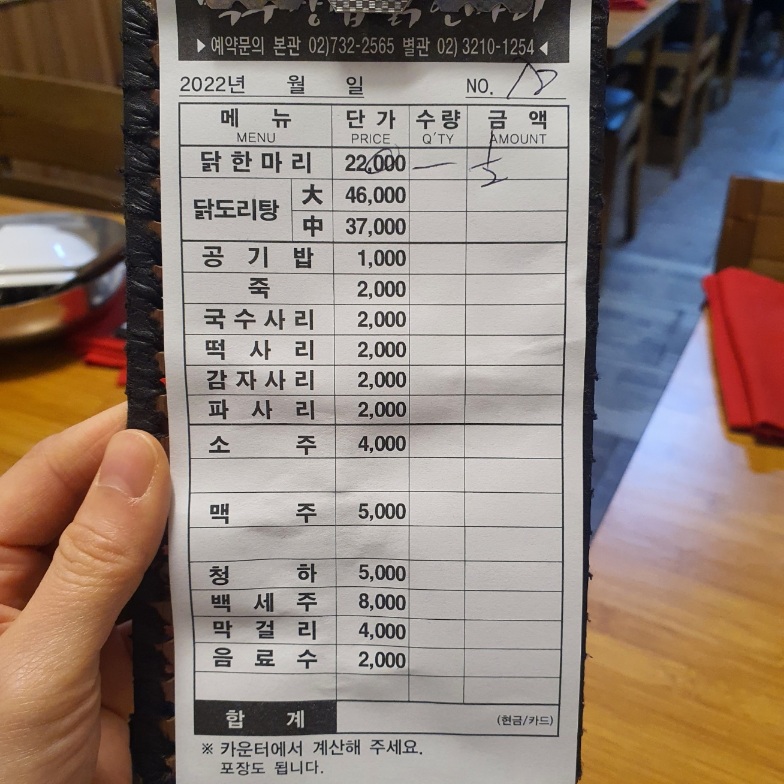 ▶ 예약문의 본관 02)732-2565 별관 02) 3210-1254 ◀
2022년 월 일 NO.
메 뉴 단 가 수량 금 액
MENU PRICE Q'TY AMOUNT
닭 한 마 리 22,000 一
닭도리탕 大 46,000
中 37,000
공 기 밥 1,000
죽 2,000
국 수 사 리 2,000
떡 사 리 2,000
감 자 사 리 2,000
파 사 리 2,000
소 주 4,000
맥 주 5,000
청 하 5,000
백 세 주 8,000
막 걸 리 4,000
음 료 수 2,000
합 계 (현금/카드)
※ 카운터에서 계산해 주세요.
포장도 됩니다.